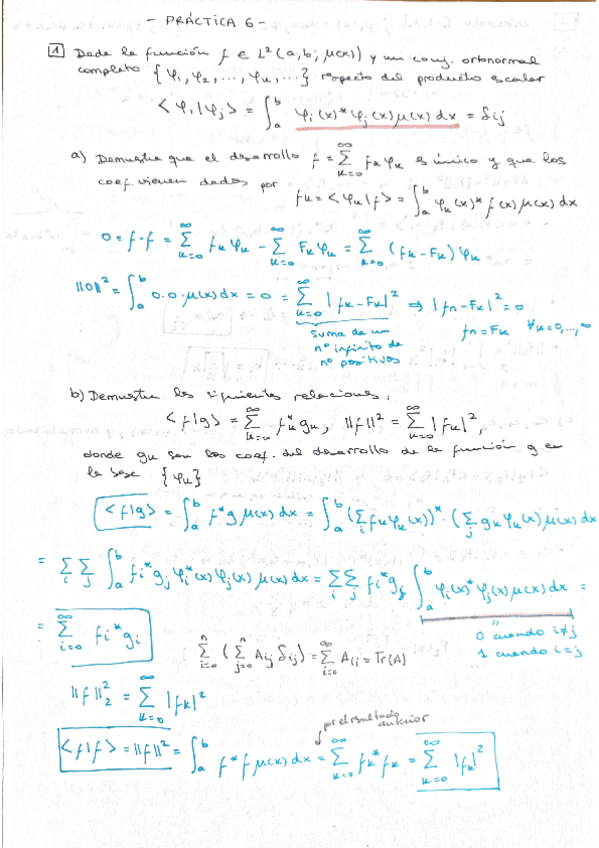 - PRÁCTICA 6 -
1 Dada la función f ∈ L²(a,b; μ(x)) y un conj. ortonormal
completo {φ₁, φ₂, ..., φₙ, ...} respecto del producto escalar
<φᵢ|φⱼ> = ∫ₐᵇ φᵢ(x)* φⱼ(x) μ(x) dx = δij
a) Demuestra que el desarrollo f = Σ_{k=0}^∞ fₖ φₖ es único y que los
coef. vienen dados por fₖ = <φₖ|f> = ∫ₐᵇ φₖ(x)* f(x) μ(x) dx
0 = f - f = Σ_{k=0}^∞ fₖ φₖ - Σ_{k=0}^∞ Fₖ φₖ = Σ_{k=0}^∞ (fₖ - Fₖ) φₖ
||0||² = ∫ₐᵇ 0·0·μ(x) dx = 0 = Σ_{k=0}^∞ |fₖ - Fₖ|² ⇒ |fn - Fₖ|² = 0
suma de un
nº infinito de
nº positivos
fn = Fₖ ∀k=0,...,∞
b) Demuestra las siguientes relaciones:
<f|g> = Σ_{k=0}^∞ fₖ* gₖ, ||f||² = Σ_{k=0}^∞ |fₖ|²,
donde gₖ son los coef. del desarrollo de la función g en
la base {φₖ}
<f|g> = ∫ₐᵇ f* g μ(x) dx = ∫ₐᵇ (Σᵢ fₖ φₖ(x))* · (Σⱼ gₖ φₖ(x)) μ(x) dx
= Σᵢ Σⱼ ∫ₐᵇ fᵢ* gⱼ φᵢ*(x) φⱼ(x) μ(x) dx = Σᵢ Σⱼ fᵢ* gⱼ ∫ₐᵇ φᵢ(x)* φⱼ(x) μ(x) dx =
"
0 cuando i≠j
1 cuando i=j
= Σ_{i=0}^∞ fᵢ* gᵢ
Σ_{i=0}^n (Σ_{j=0}^n Aij δij) = Σ_{i=0}^∞ Aii = Tr(A)
||f||₂² = Σ_{k=0}^∞ |fk|²
por el resultado
anterior
<f|f> = ||f||² = ∫ₐᵇ f* f μ(x) dx = Σ_{k=0}^∞ fₖ* fₖ = Σ_{k=0}^∞ |fₖ|²